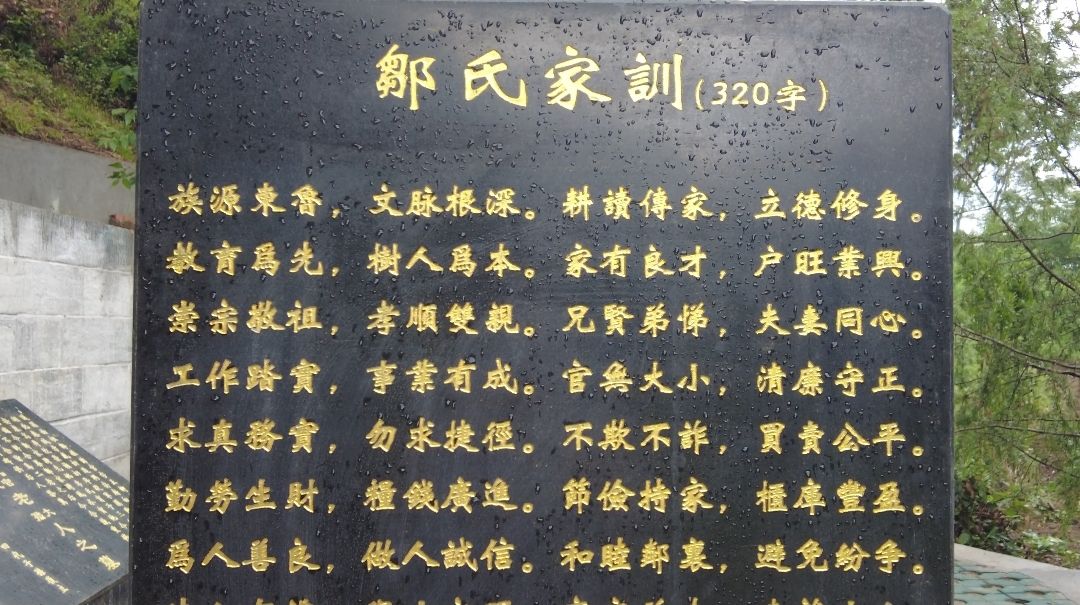 鄒氏家訓(320字)
族源東魯，文脉根深。耕讀傳家，立德修身。
教育爲先，樹人爲本。家有良才，户旺業興。
崇宗敬祖，孝順雙親。兄賢弟悌，夫妻同心。
工作踏實，事業有成。官無大小，清廉守正。
求真務實，勿求捷徑。不欺不詐，買賣公平。
勤勞生財，糧錢廣進。節儉持家，櫃庫豐盈。
爲人善良，做人誠信。和睦鄰裏，避免紛争。